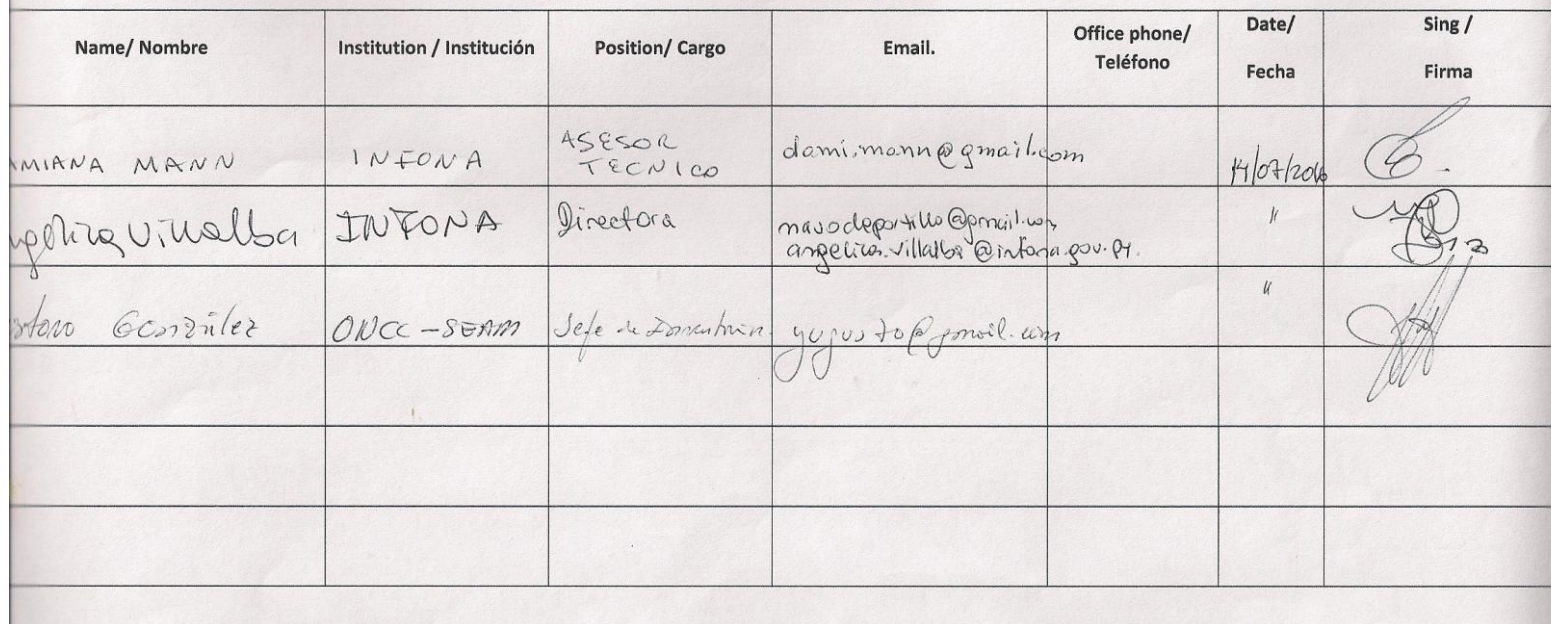 Name/ Nombre Institution / Institución Position/ Cargo Email. Office phone/ Teléfono Date/ Fecha Sing / Firma
AMIANA MANN INFONA ASESOR TECNICO dami.mann@gmail.com 14/07/2016
Villalba INFONA Directora
angelica.villalba@infona.gov.py. "
González ONCC-SEAM Jefe de "